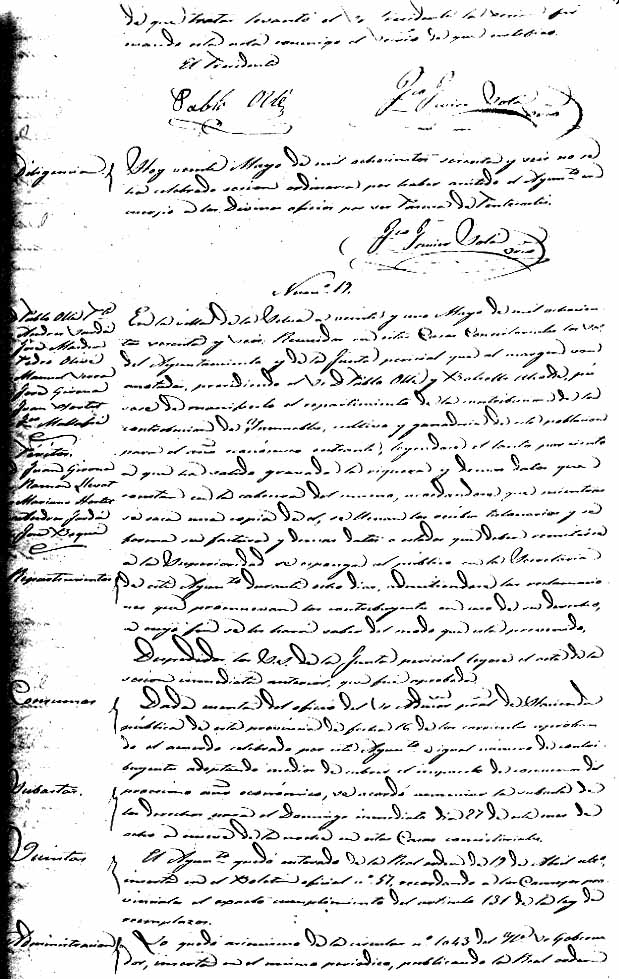 de que tratar levantó el Sr. Presidente la sesion fir
mando esta acta conmigo el Srio de que certifico.
El Presidente
Pablo Ollé
Fco Javier Solá
Srio
Diligencia
Hoy veinte Mayo de mil ochocientos sesenta y seis no se
ha celebrado sesion ordinaria por haber asistido el Ayunto en
cuerpo a los Divinos oficios por ser Pascua de Pentecostés.
Fco Javier Solá
Srio
Num.º 19.
D. Pablo Ollé Pte
Andres Jordá
José
Pedro Olivé
Manuel
José Girona
Juan
Peritos.
Juan Girona
Ramon Llevat
Mariano
Andres Jordá
José
En la villa de la Selva a veinte y uno Mayo de mil ochocien
tos sesenta y seis. Reunidos en estas Casas Consistoriales los Sres
del Ayuntamiento y de la Junta pericial que al margen van
anotados, presidiendo el Sr D. Pablo Ollé y Alcalde, pú
sose de manifiesto el repartimiento de la contribucion de la
contribucion de Inmuebles, cultivo y ganaderia de esta poblacion
para el año económico entrante, leyendose el tanto por ciento
a que ha salido gravada la riqueza y demas datos que
constan en la cabeza del mismo, acordandose que mientras
se saca una copia de el, se llenan los recibos talonarios y se
forma su factura y demas datos o estados que deben remitirse
a la Superioridad se esponga al público en la Secretaria
Repartimientos
de este Ayunto durante ocho dias, admitiendose las reclamacio
nes que promuevan los contribuyentes en uso de su derecho,
a cuyo fin se les hará saber del modo que está prevenido.
Despedidos los Sres de la Junta pericial leyose el acta de la
sesion inmediata anterior, que fue aprobada.
Consumos
Dada cuenta del oficio del Sr Admor pral de Hacienda
pública de esta provincia de fecha 16 de los corrientes aproban
do el acuerdo celebrado por este Ayunto e igual número de contri
buyentes adoptando medios de cubrir el impuesto de consumos del
Subastas.
proximo año económico, se acordó anunciar la subasta de
los derechos para el Domingo inmediato dia 27 de este mes de
ocho a nueve de la noche en estas Casas consistoriales.
Quintas
El Ayunto quedó enterado de la Real orden de 19 de Abril últo,
inserta en el Boletin oficial nº 57, recordando a los Consejos pro
vinciales el exacto cumplimiento del articulo 131 de la ley de
reemplazos.
Administracion
Lo quedó asimismo de la circular nº 1043 del M. I. Sr Goberna
dor, inserta en el mismo periodico, publicando la Real orden